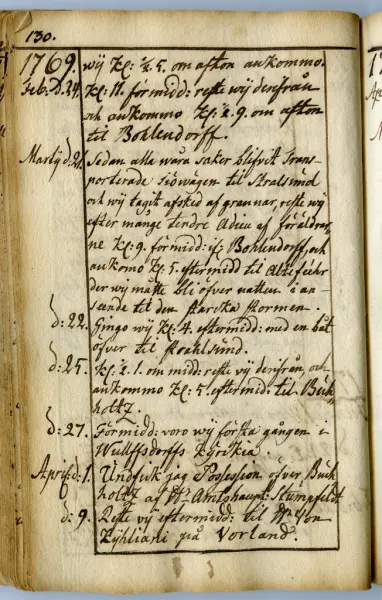 130.
1769. wij Kl: ½ 5. om afton ankommo.
Feb: d. 24. Kl: 11. förmidd: reste wij derifrån
och ankommo Kl: ½ 9. om afton
til Bohlendorff.
Martij d: 21. Sedan alla wåra saker blifvit trans-
porterade siöwägen til Stralsund
och wij tagit afsked af grannar, reste wij
efter många tendre Adieu af föräldrar-
ne Kl: 9. förmidd: if: Bohlendorff, och
ankomo Kl: 5. eftermidd til Altefehr
der wij måtte bli öfver natten i an-
seende til den starcka stormen.
d: 22. Gingo wij Kl: 4. eftermidd: med en båt
öfver til Strahlsund.
d: 25. Kl: ½ 1. om midd: reste vij derifrån, och
ankommo Kl: 5. eftermid: til Buch-
holtz.
d: 27. Förmidd: voro wij första gången i
Wulffsdorffs Kyrckia.
April: d: 1. Undfick jag Possession öfver Buch
holtz af Hr Amtshaupt: Stumpfeldt
d: 9. Reste vij eftermidd: til Hr Von
på Vorland.